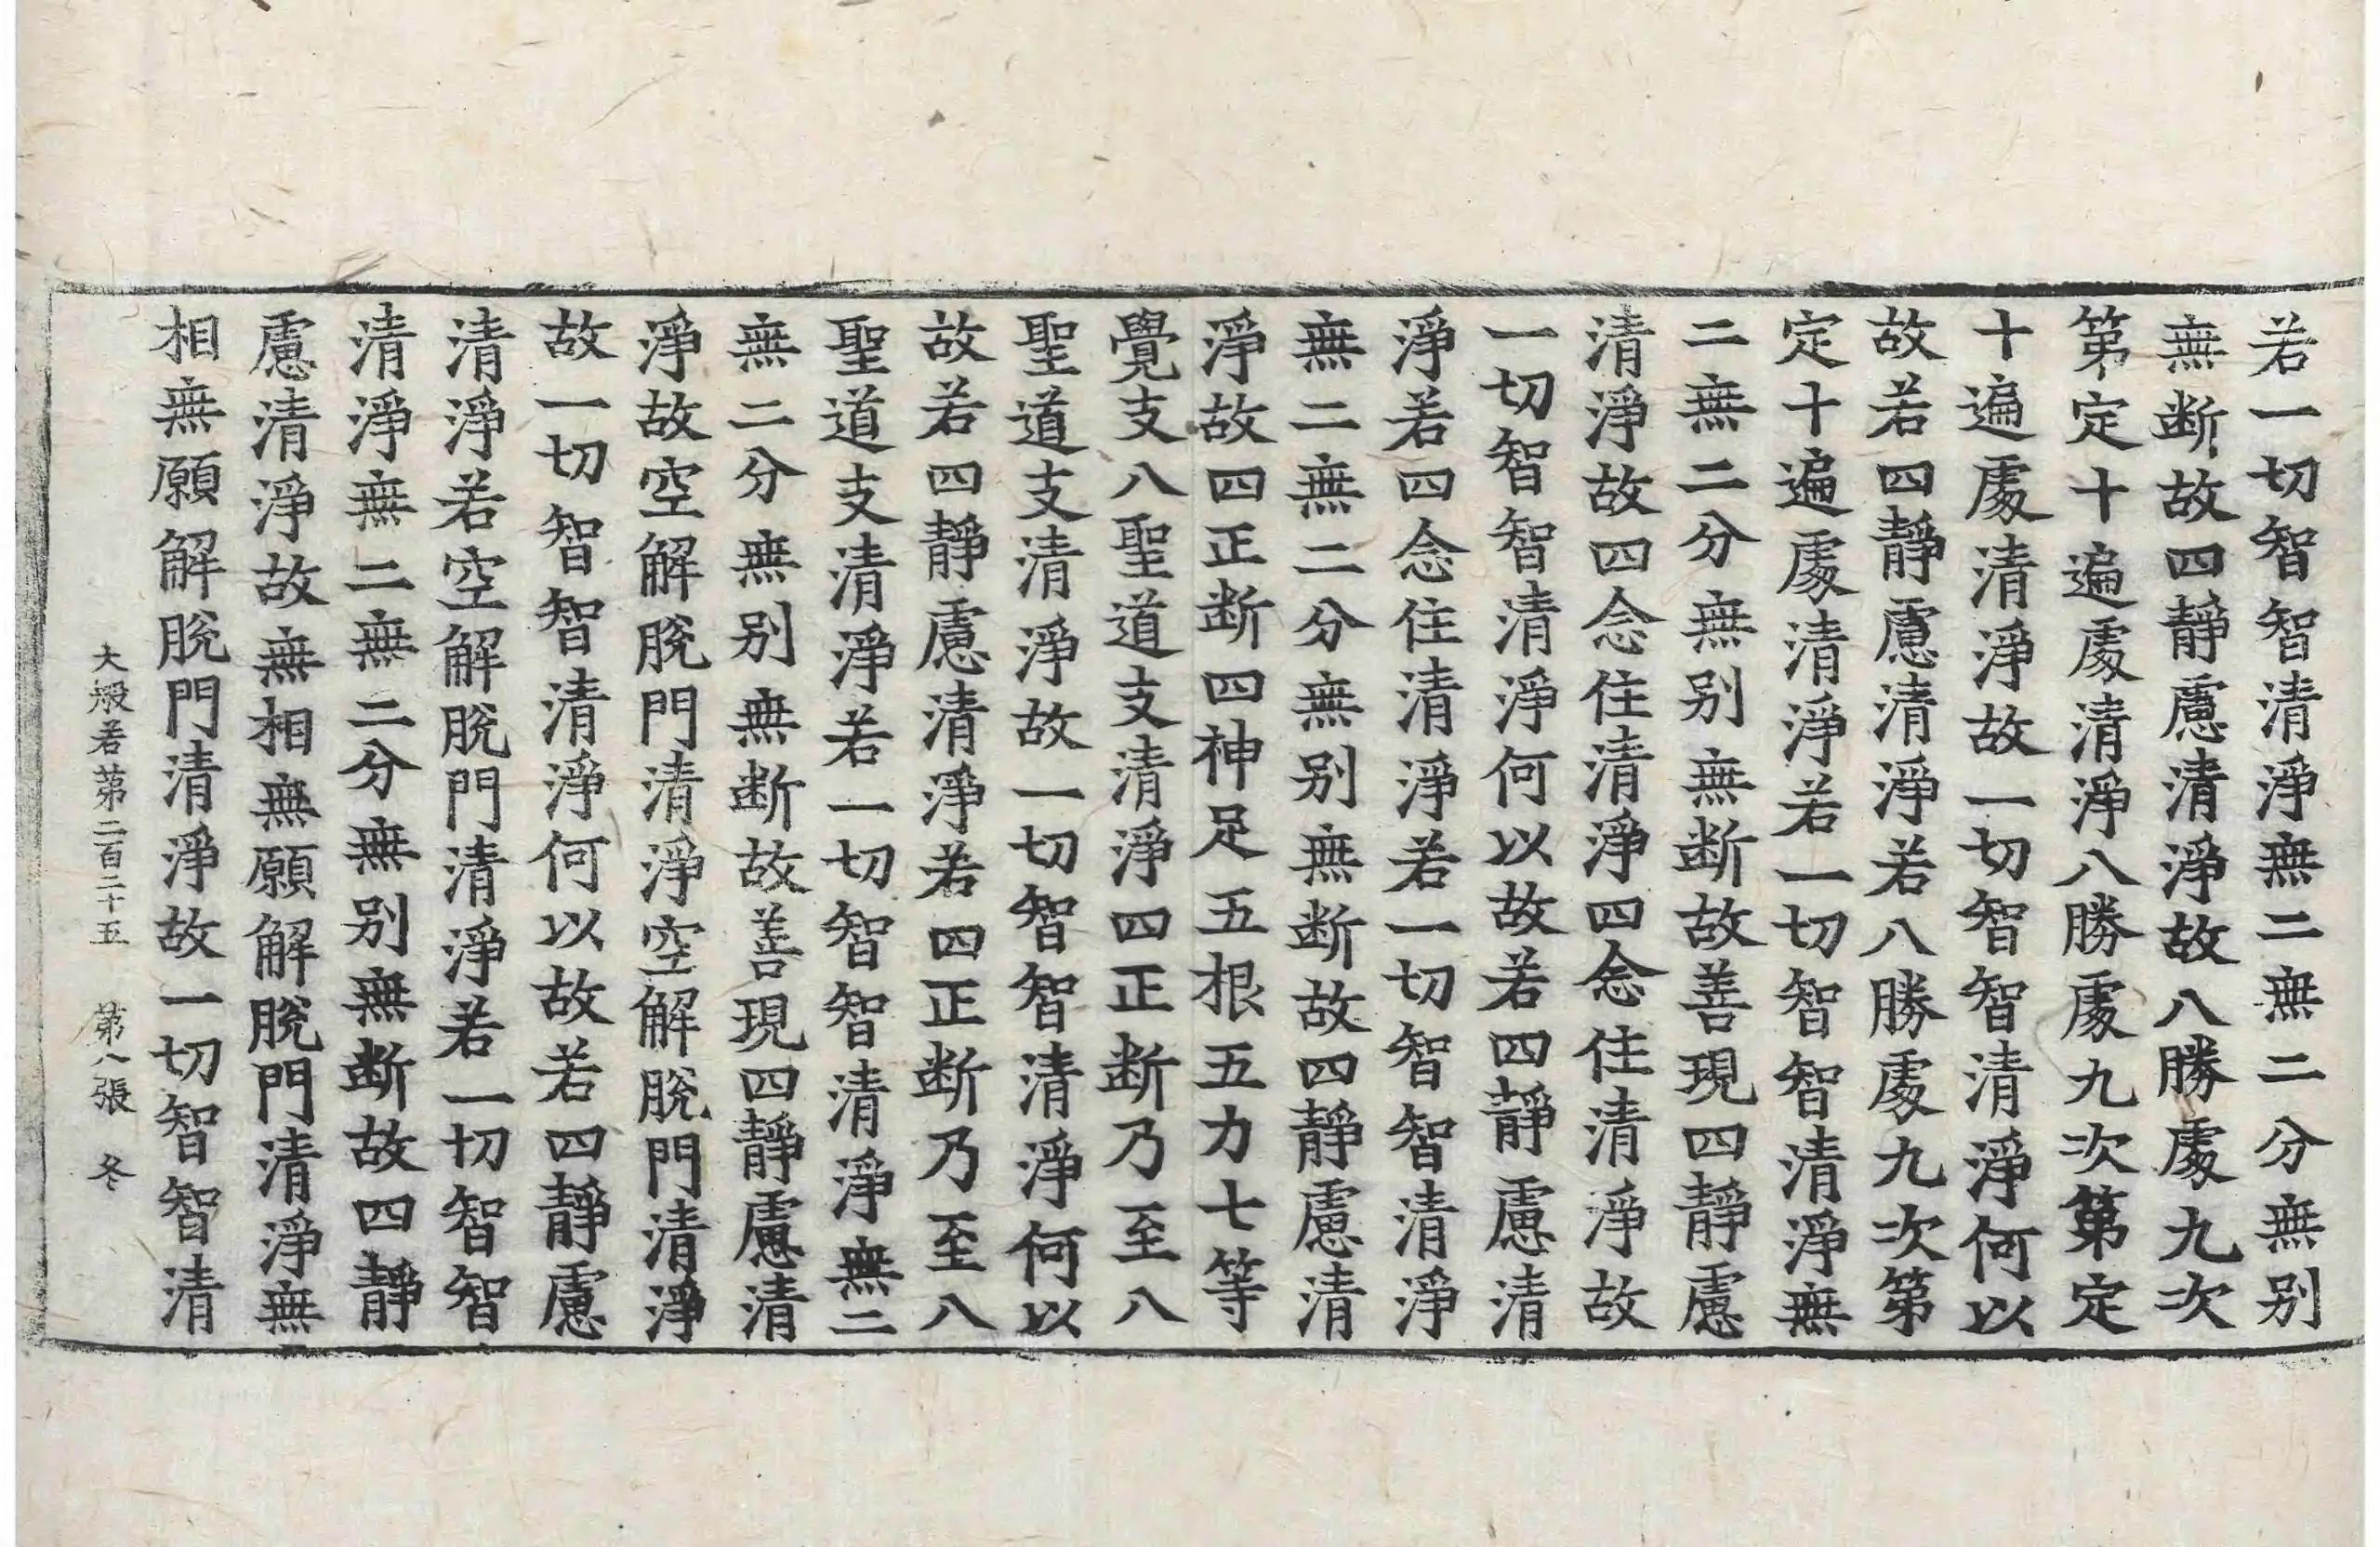 若一切智智清淨無二無二分無别
無断故四靜慮清淨故八勝處九次
第定十遍處清淨八勝處九次第定
十遍處清淨故一切智智清淨何以
故若四靜慮清淨若八勝處九次第
定十遍處清淨若一切智智清淨無
二無二分無别無断故善現四靜慮
清淨故四念住清淨四念住清淨故
一切智智清淨何以故若四靜慮清
淨若四念住清淨若一切智智清淨
無二無二分無别無断故四靜慮清
淨故四正断四神足五根五力七等
覺支八聖道支清淨四正断乃至八
聖道支清淨故一切智智清淨何以
故若四靜慮清淨若四正断乃至八
聖道支清淨若一切智智清淨無二
無二分無别無断故善現四靜慮清
淨故空解脫門清淨空解脫門清淨
故一切智智清淨何以故若四靜慮
清淨若空解脫門清淨若一切智智
清淨無二無二分無别無断故四靜
慮清淨故無相無願解脫門清淨無
相無願解脫門清淨故一切智智清
大般若第二百二十五 第八張 冬